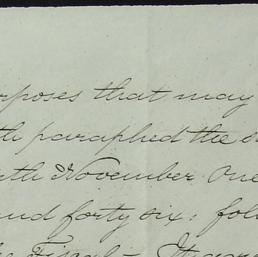 rposes that may
th paraphed the s
nth November One
and forty six: fol
he Fiscal